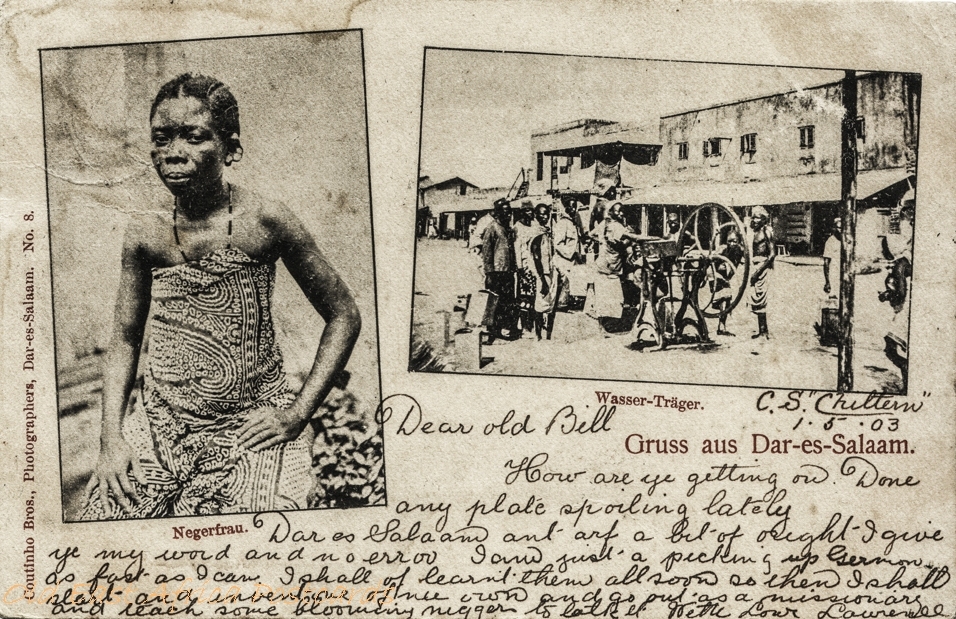 Coutinho Bros., Photographers, Dar-es-Salaam. No. 8.
Negerfrau.
Wasser-Träger.
Gruss aus Dar-es-Salaam.
C.S. "Chiltern"
1.5.03
Dear old Bill
How are ye getting on. Done
any plate spoiling lately
Dar es Salaam ant arf a bit of oright I give
ye my word and no error I am just a picking up German
as fast as I can. I shall of learnt them all soon so then I shall
start and invent one of me own and go out as a missionary
and teach some blooming niggers to talk it With Love Lawrence